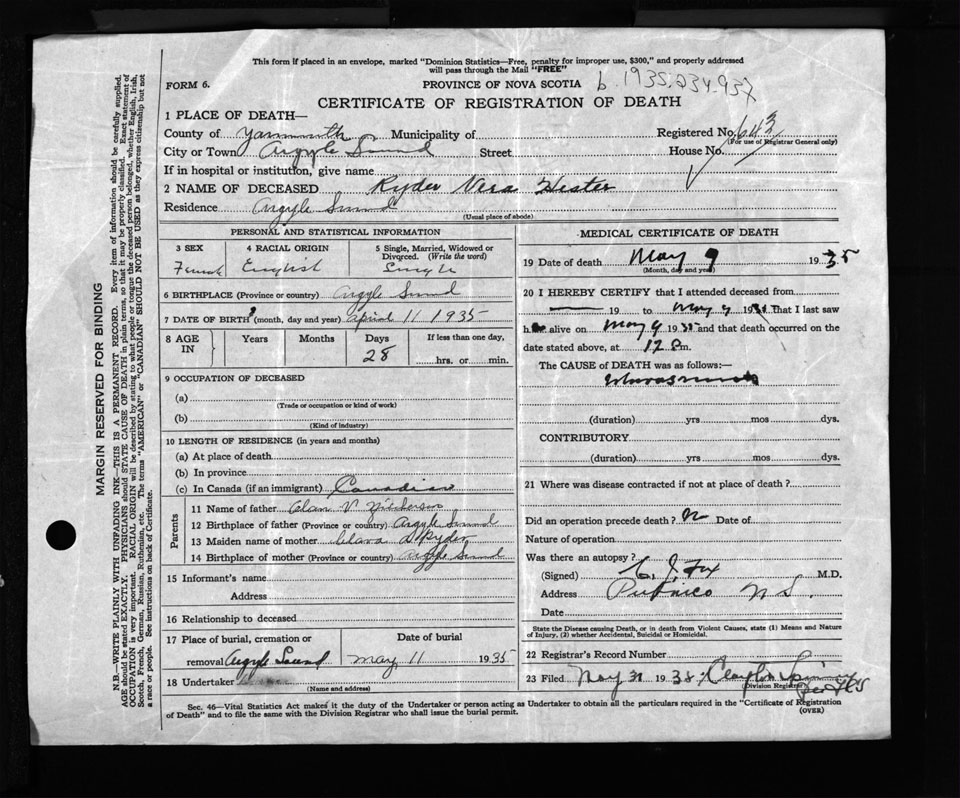 This form if placed in an envelope, marked "Dominion Statistics—Free, penalty for improper use, $300," and properly addressed
will pass through the Mail "FREE"
FORM 6. PROVINCE OF NOVA SCOTIA b. 1935.234.937
CERTIFICATE OF REGISTRATION OF DEATH
1 PLACE OF DEATH—
County of Yarmouth Municipality of Registered No. 643
(For use of Registrar General only)
City or Town Argyle Sound Street House No.
If in hospital or institution, give name
2 NAME OF DECEASED Ryder Vera Hester
Residence Argyle Sound
(Usual place of abode)
PERSONAL AND STATISTICAL INFORMATION
3 SEX 4 RACIAL ORIGIN 5 Single, Married, Widowed or
Divorced. (Write the word)
Female English Single
6 BIRTHPLACE (Province or country) Argyle Sound
7 DATE OF BIRTH (month, day and year) April 11 1935
8 AGE IN Years Months Days If less than one day,
28 hrs. or min.
9 OCCUPATION OF DECEASED
(a)
(Trade or occupation or kind of work)
(b)
(Kind of industry)
10 LENGTH OF RESIDENCE (in years and months)
(a) At place of death
(b) In province
(c) In Canada (if an immigrant) Canadian
Parents
11 Name of father Alan V
12 Birthplace of father (Province or country) Argyle Sound
13 Maiden name of mother Clara Ryder
14 Birthplace of mother (Province or country) Argyle Sound
15 Informant's name
Address
16 Relationship to deceased
17 Place of burial, cremation or Date of burial
removal Argyle Sound May 11 1935
18 Undertaker
(Name and address)
MEDICAL CERTIFICATE OF DEATH
19 Date of death May 9 1935
(Month, day and year)
20 I HEREBY CERTIFY that I attended deceased from
19 to May 9 1935 That I last saw
h alive on May 9 1935 and that death occurred on
date stated above, at 12 m.
The CAUSE OF DEATH was as follows:—
(duration) yrs mos dys.
CONTRIBUTORY
(duration) yrs mos dys.
21 Where was disease contracted if not at place of death?
Did an operation precede death? N Date of
Nature of operation
Was there an autopsy?
(Signed) C. J. Fox M.D.
Address Pubnico N S.
Date
State the Disease causing Death, or in death from Violent Causes, state (1) Means and Nature
of Injury, (2) whether Accidental, Suicidal or Homicidal.
22 Registrar's Record Number
23 Filed May 31 1935
(Division Registrar)
Sec. 46—Vital Statistics Act makes it the duty of the Undertaker or person acting as Undertaker to obtain all the particulars required in the "Certificate of Registration
of Death" and to file the same with the Division Registrar who shall issue the burial permit. (OVER)
MARGIN RESERVED FOR BINDING
N.B.—WRITE PLAINLY WITH UNFADING INK—THIS IS A PERMANENT RECORD. Every item of information should be carefully supplied.
AGE should be stated EXACTLY. PHYSICIANS should STATE CAUSE OF DEATH in plain terms, so that it may be properly classified. Exact statement of
OCCUPATION is very important. RACIAL ORIGIN will be described by stating to what people or tongue the deceased person belonged, whether English, Irish,
Scotch, French, German, Russian, Ruthenian, etc. The terms "AMERICAN" or "CANADIAN" SHOULD NOT BE USED as they express citizenship but not
a race or people. See instructions on back of Certificate.